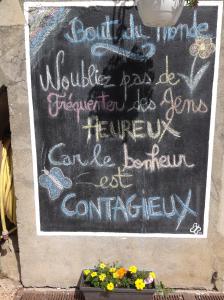 Bout du Monde
N'oubliez pas de
Fréquenter des Gens
HEUREUX
Car le bonheur
est
CONTAGIEUX